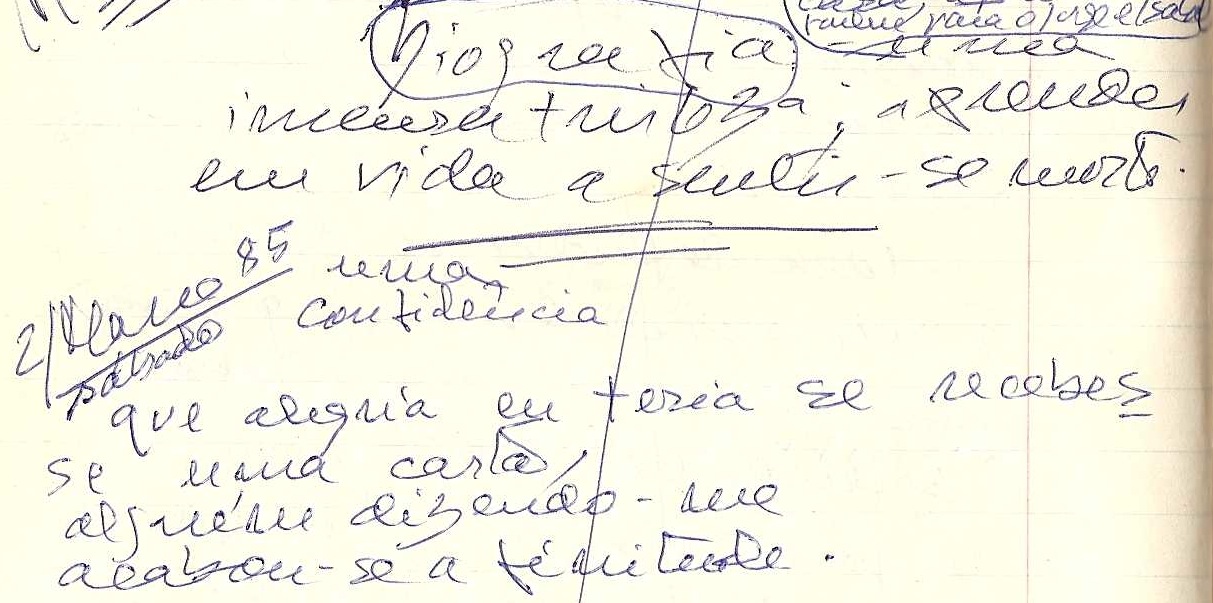 para o Jorge e Sá
Biografia: uma
imensa tristeza; aprender
em vida a sentir-se morto.
2/Março 85
passado
uma
confidência
que alegria eu teria se recebes
se uma carta,
alguém dizendo-me
acabou-se a finitude.